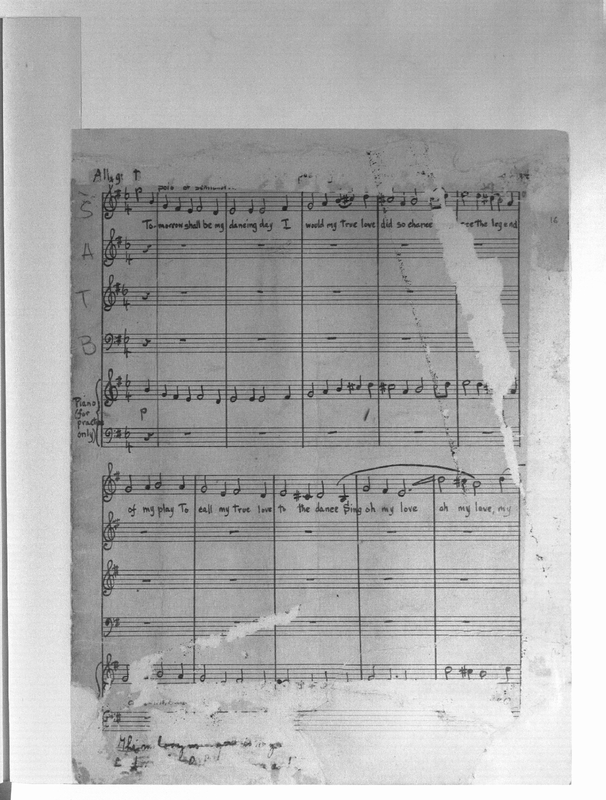 Allegr
p
S
To-morrow shall be my dancing day I would my true love did so chance the legend
12
A
T
B
Piano
(for
practice
only)
p
of my play To call my true love to the dance Sing oh my love oh my love, my